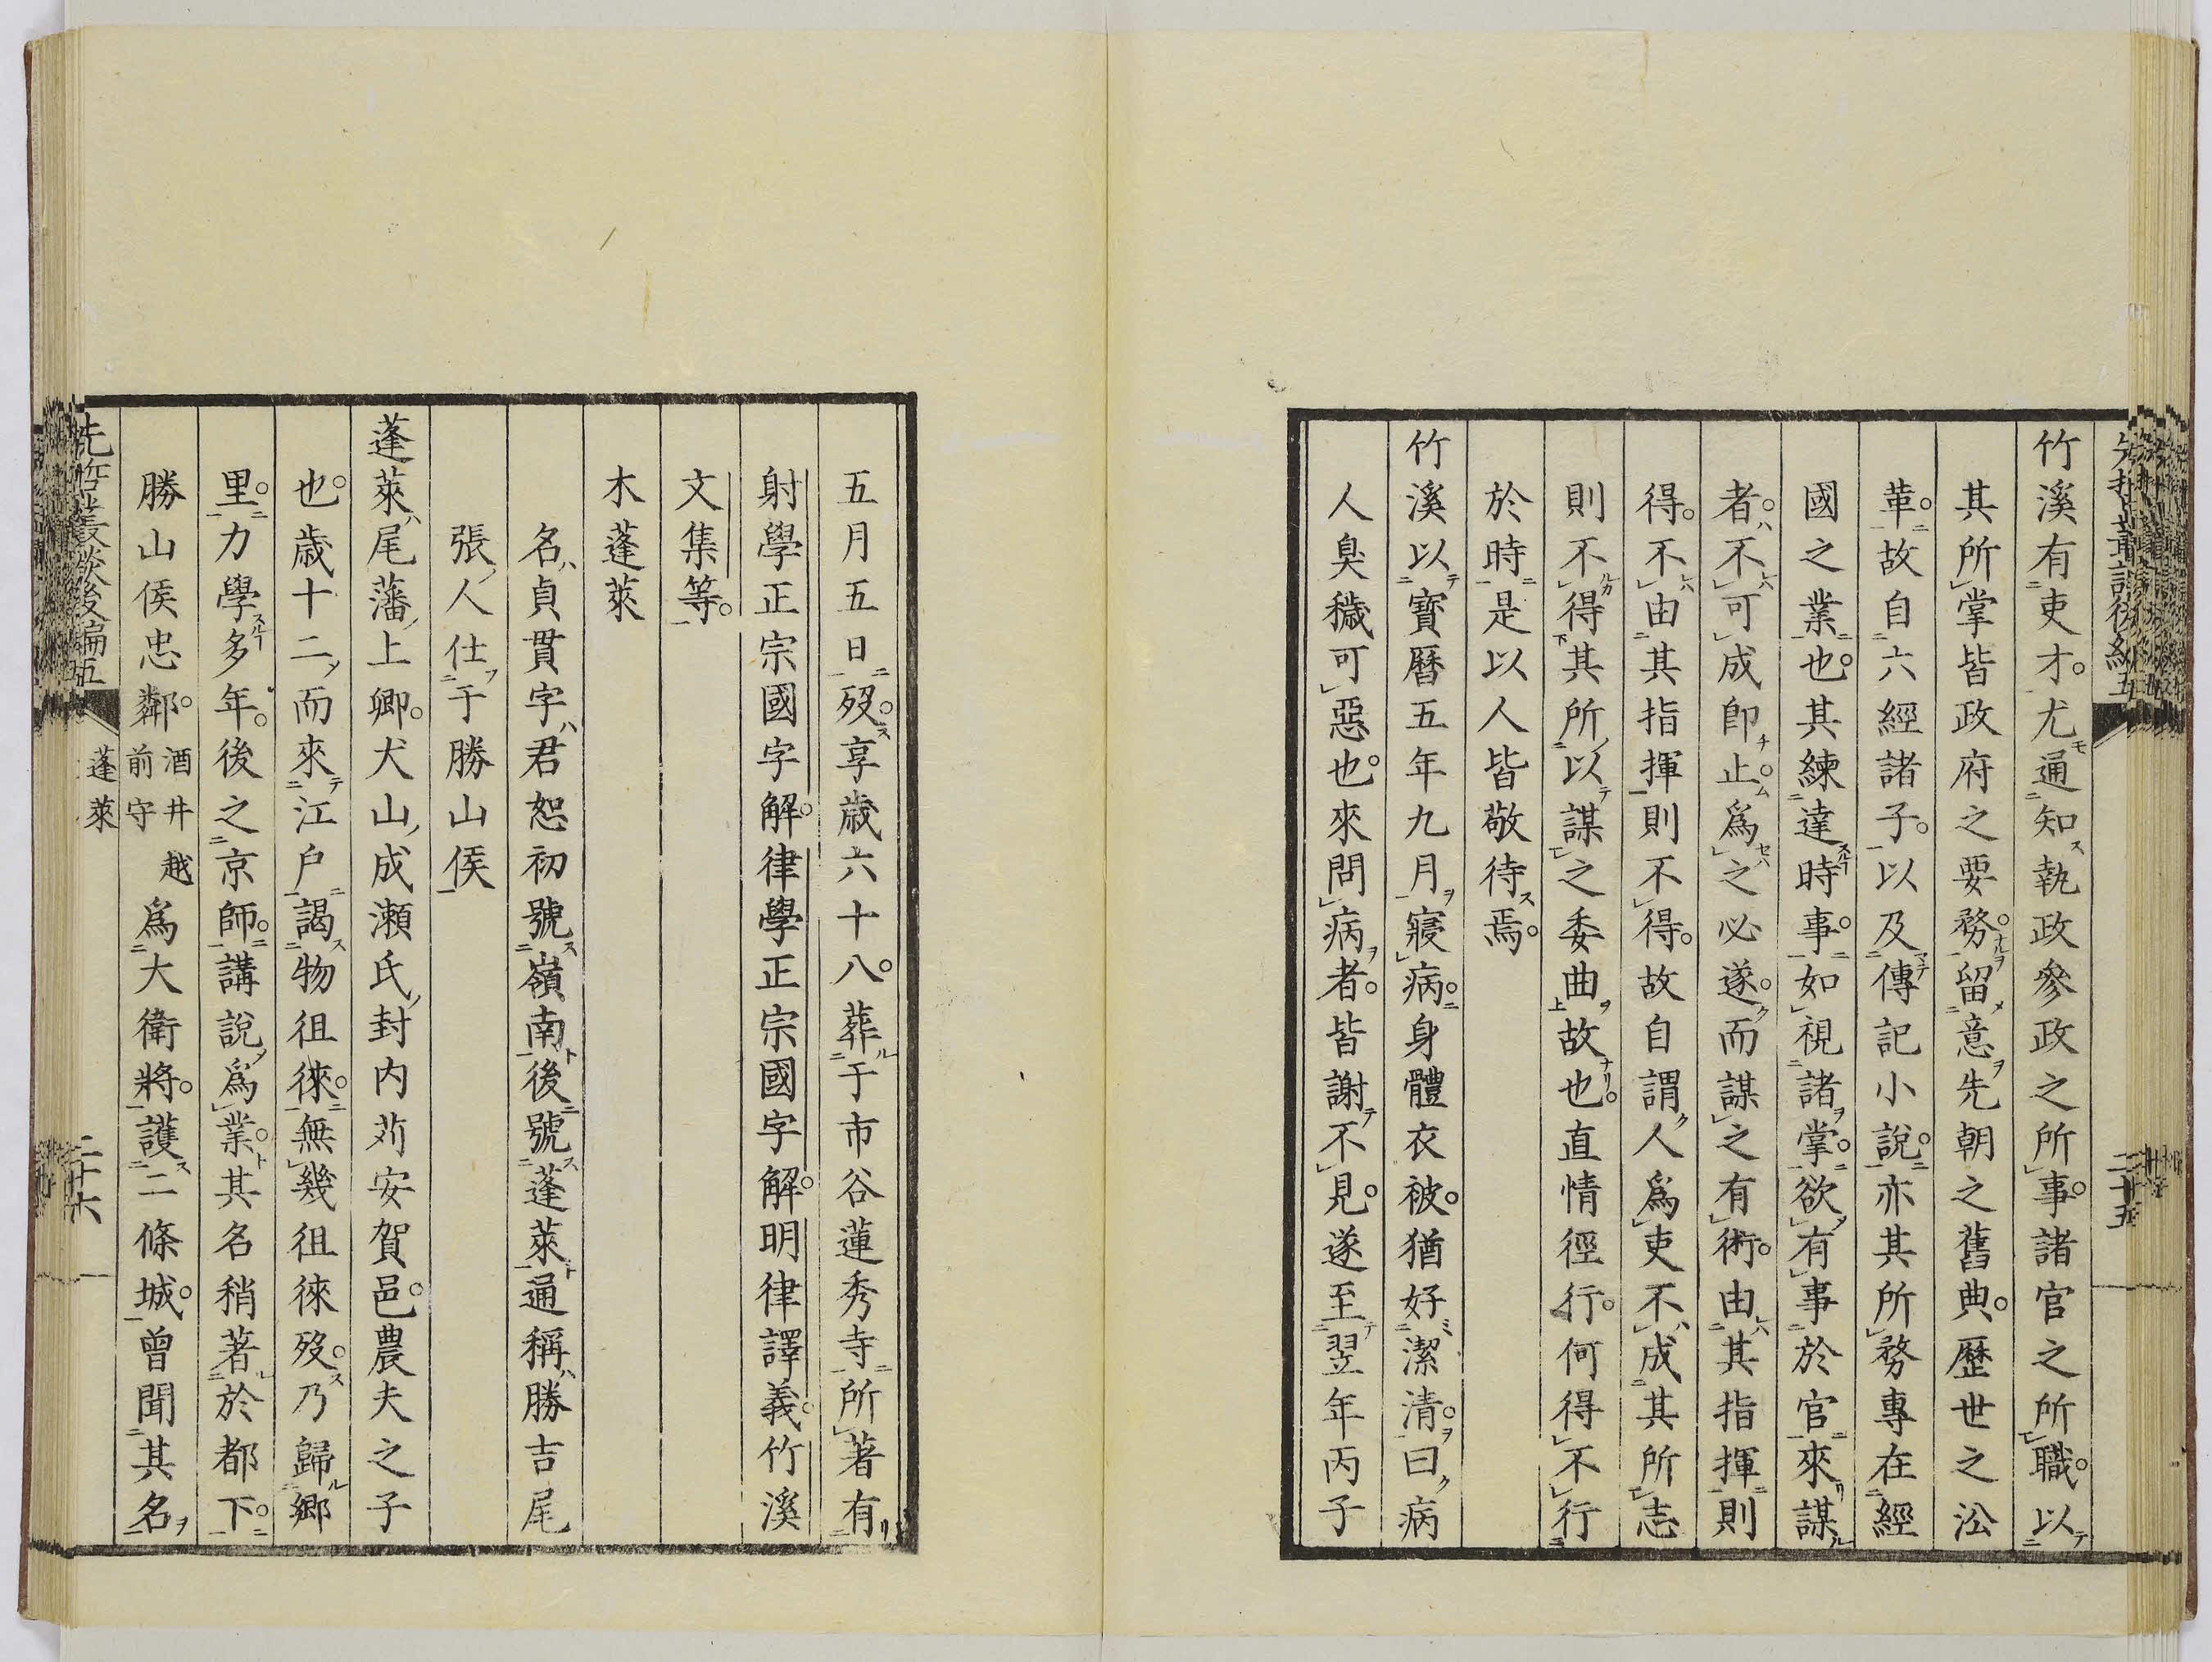 竹溪有吏才。尤通知執政參政之所事。諸官之所職。以
其所掌皆政府之要務。留意先朝之舊典。歷世之㳂
革。故自六經諸子。以及傳記小說。亦其所務專在經
國之業也。其練達時事。如視諸掌。欲有事於官來謀
者。不可成卽止。爲之必遂。而謀之有術。由其指揮則
得。不由其指揮則不得。故自謂人爲吏不成其所志
則不得其所以謀之委曲故也。直情徑行。何得不行
於時。是以人皆敬待焉。
竹溪以寶曆五年九月寢病。身體衣被。猶好潔清。曰病
人臭穢可惡也。來問病者。皆謝不見。遂至翌年丙子
先哲叢談後編五
二十五
五月五日歿。享歲六十八。葬于市谷蓮秀寺所著有
射學正宗國字解。律學正宗國字解。明律譯義。竹溪
文集等。
木蓬萊
名貞貫字君恕初號嶺南後號蓬萊通稱勝吉尾
張人仕于勝山侯
蓬萊尾藩上卿。犬山成瀨氏封内苅安賀邑。農夫之子
也。歲十二而來江戶謁物徂徠。無幾徂徠歿。乃歸鄉
里。力學多年。後之京師。講說爲業。其名稍著於都下。
勝山侯忠鄰。酒井越前守爲大衛將。護二條城。曾聞其名
先哲叢談後編五
蓬萊
二十六